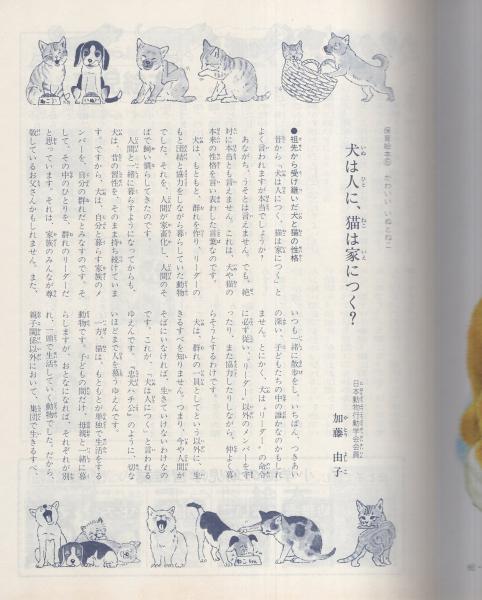 保育絵本⑮ かわいい いぬとねこ
犬は人に、猫は家につく?
日本動物行動学会会員
加藤 由子
●祖先から受け継いだ犬と猫の性格
昔から「犬は人につく、猫は家につく」と
よく言われますが本当でしょうか?
あながち、うそとは言えません。でも、絶
対に本当とも言えません。これは、犬や猫の
本来の性格を言い表わした言葉なのです。
犬は、もともと、群れを作り、リーダーの
もと団結と協力をしながら暮らしていた動物
でした。それを、人間が家畜化し、人間のそ
ばで飼い慣らしてきたのです。
人間と一緒に暮らすようになってからも、
犬は、昔の習性を、そのまま持ち続けていま
す。ですから、犬は、自分と暮らす家族のメ
ンバーを、自分の群れだとみなすのです。そ
して、その中のひとりを、群れのリーダーだ
と思っています。それは、家族のみんなが尊
敬しているお父さんかもしれません。また、
いつも一緒に散歩をし、いちばん、つきあい
の深い、子どもたちの中の誰かなのかもしれ
ません。とにかく、犬は"リーダー"の命令
に必ず従い、"リーダー"以外のメンバーを守
ったり、また協力したりしながら、仲よく暮
らそうとするわけです。
犬は、群れの一員としてという以外に、生
きるすべを知りません。つまり、今や人間が
そばにいなければ、生きていけないわけなの
です。これが、「犬は人につく」と言われる
ゆえんです。『忠犬ハチ公』のように、切な
いほどまで人を慕うゆえんです。
一方、猫は、もともとが単独で生活をする
動物です。子どもの間だけ、母親と一緒に暮
らしますが、おとなになれば、それぞれが別
れ、一頭で生活していく動物でした。だから、
親子関係以外において、集団で生きるすべ、